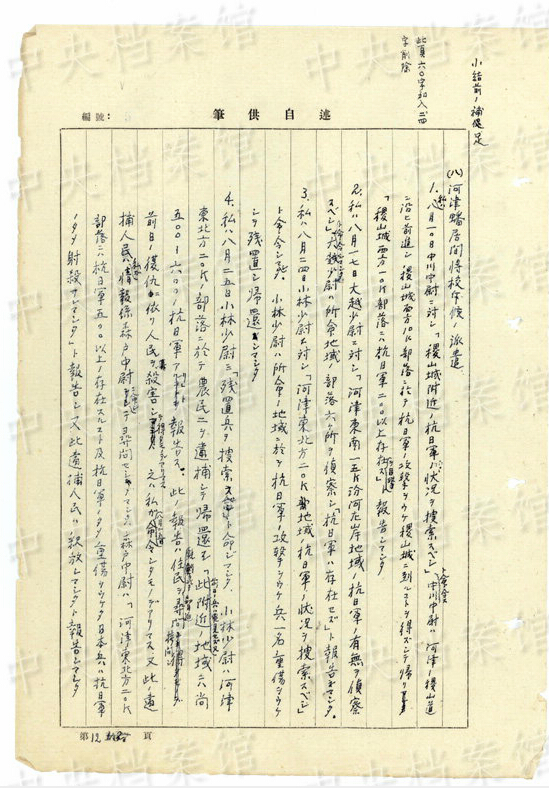 小結前ノ補足
此頁六〇字加入二四
字削除
筆供自述
編號:
(八)河津蟠居間將校斥候ノ派遣
1.私ハ八月一〇日中川中尉ニ対シ「稷山城附近ノ抗日軍ノ状況ヲ捜索スベシ」ト命令 中川中尉ハ河津ー稷山道
ニ沿ヒ前進シ稷山城西方10K部落ニ於テ抗日軍ノ攻撃ヲウケ稷山城ニ到ルコトヲ得ズシテ帰リ
「稷山城西方一〇K部落ニハ抗日軍二〇〇以上存在ス」ト報告シマシタ
2.私ハ八月一七日大越少尉ニ対シ「河津東南一五K汾河左岸地域ノ抗日軍ノ有無ヲ偵察
スベシ」大越少尉ハ所命地域ノ部落六ヶ所ヲ偵察シ「抗日軍ハ存在セズ」ト報告シマシタ。
3.私ハ八月二四日小林少尉ニ対シ「河津東北方二〇K地域抗日軍ノ状況ヲ捜索スベシ」
ト命令シマシタ。小林少尉ハ所命ノ地域ニ於テ抗日軍ノ攻撃ヲウケ兵一名重傷ヲウケ
シヲ残置シ帰還シマシタ
4.私ハ八月二五日小林少尉ニ「残置兵ヲ捜索スベシ」ト命シマシタ 小林少尉ハ河津
東北方二〇Kノ部落ニ於テ農民二ヲ逮捕シテ帰還シ「此附近ノ地域ニハ尚
五〇〇ー六〇〇ノ抗日軍アリ」ト報告ス。此ノ報告ハ住民ヲ尋問
前日ノ復仇ニ依リ人民ヲ殺害シ 之ハ私ガ命令シタモノデアリマス又此ノ逮
捕人民ハ情報係森中尉ヲシテ尋問セシメマシタ 森中尉ハ「河津東北方二〇K
部落ニハ抗日軍五〇〇以上ノ存在スルコト及抗日軍ハ重傷ヲウケタ日本兵ハ抗日軍
ノタメ射殺サレマシタ」ト報告シ又此逮捕人民ハ釈放シマシタト報告シマシタ
第12頁
中央档案馆